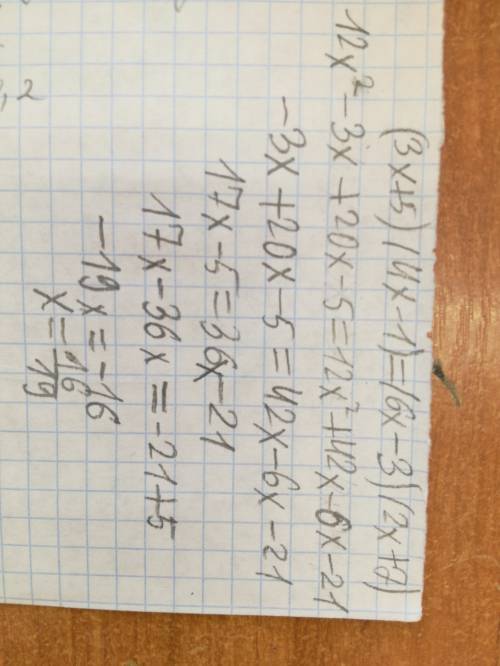 (3x+5)(4x-1)=(6x-3)(2x+7)
12x²-3x+20x-5=12x²+42x-6x-21
-3x+20x-5=42x-6x-21
17x-5=36x-21
17x-36x=-21+5
-19x=-16
x=16/19